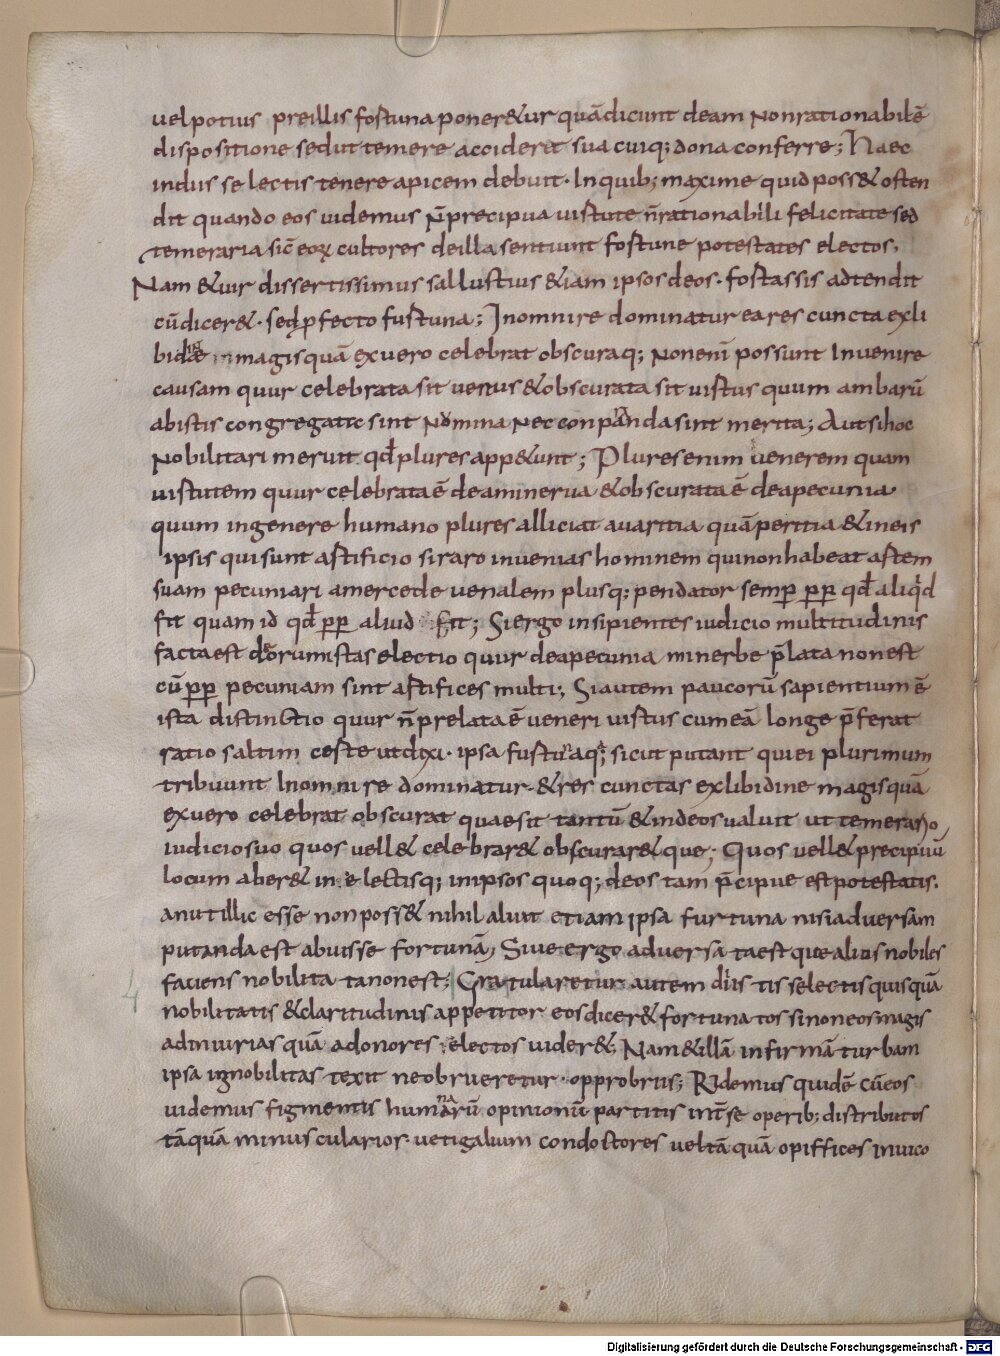 uel potius preillis fortuna poner&ur quā dicunt deam non rationabilē
dispositione sed ut temere acciderit sua cuiq; dona conferre; Haec
indiis selectis tenere apicem debuit· In quib; maxime quid poss& osten
dit quando eos uidemus n̄ precipua uirtute n̄ rationabili felicitate sed
temeraria sic̄ eoꝝ cultores de illa sentiunt fortune potestates electos·
Nam & uir dissertissimus sallustius &iam ipsos deos· fortassis adtendit
cū dicer&· sed ꝓfecto furtuna; In omni re dominatur ea res cuncta exli
bidine magis quā ex uero celebrat obscuraq; non enī possunt Inuenire
causam quur celebrata sit uenus & obscurata sit uirtus quum ambarū
ab istis congregate sint nomina nec conparanda sint merita; Aut si hoc
nobilitari meruit qd̄ plures app&unt; Plures enim uenerem quam
uirtutem quur celebrata ē dea minerua & obscurata ē dea pecunia
quum in genere humano plures alliciat auaritia quā peritia & in eis
ipsis qui sunt artificio si raro inuenias hominem qui non habeat artem
suam pecuniari a mercede uenalem plusq; pendator semꝑ ꝓꝑ qd̄ aliqid
fit quam id qd̄ ꝓꝑ aliud fit; Si ergo insipientes iudicio multitudinis
facta est deorum istas electio quur dea pecunia minerbe p̄lata non est
cū ꝓꝑ pecuniam sint artifices multi; Si autem paucorū sapientium ē
ista distinctio quur n̄ prelata ē ueneri uirtus cum eā longe p̄ferat
ratio saltim certe ut dixi· ipsa furtuna q; sicut putant qui ei plurimum
tribuunt In omni re dominatur· & res cunctas ex libidine magis quā
ex uero celebrat obscurat quae sit tantū & in deos ualuit ut temerario
iudicio suo quos uell& celebrar& obscurar& que; Quos uell& precipuū
locum aber& in electisq; in ipsos quoq; deos tam p̄cipue est potestatis·
an ut illic esse non poss& nihil aliut etiam ipsa furtuna nisi aduersam
putanda est abuisse fortunā; Siue ergo aduersa ta est que alios nobiles
faciens nobilita ta non est; Gratularetur autem diis tis selectis quisquā
nobilitatis & claritudinis appetitor eos dicer& fortunatos si non eos magis
ad iniurias quā ad onores electos uider&; Nam & illā infirmā turbam
ipsa ignobilitas texit ne obrueretur· opprobriis; Ridemus quidē cū eos
uidemus figmentis humanarū opinionū partitis int̄ se operib; distributos
tā quā minuscularior uetigalium condoctores uel tā quā opiffices in uico
Digitalisierung gefördert durch die Deutsche Forschungsgemeinschaft - DFG